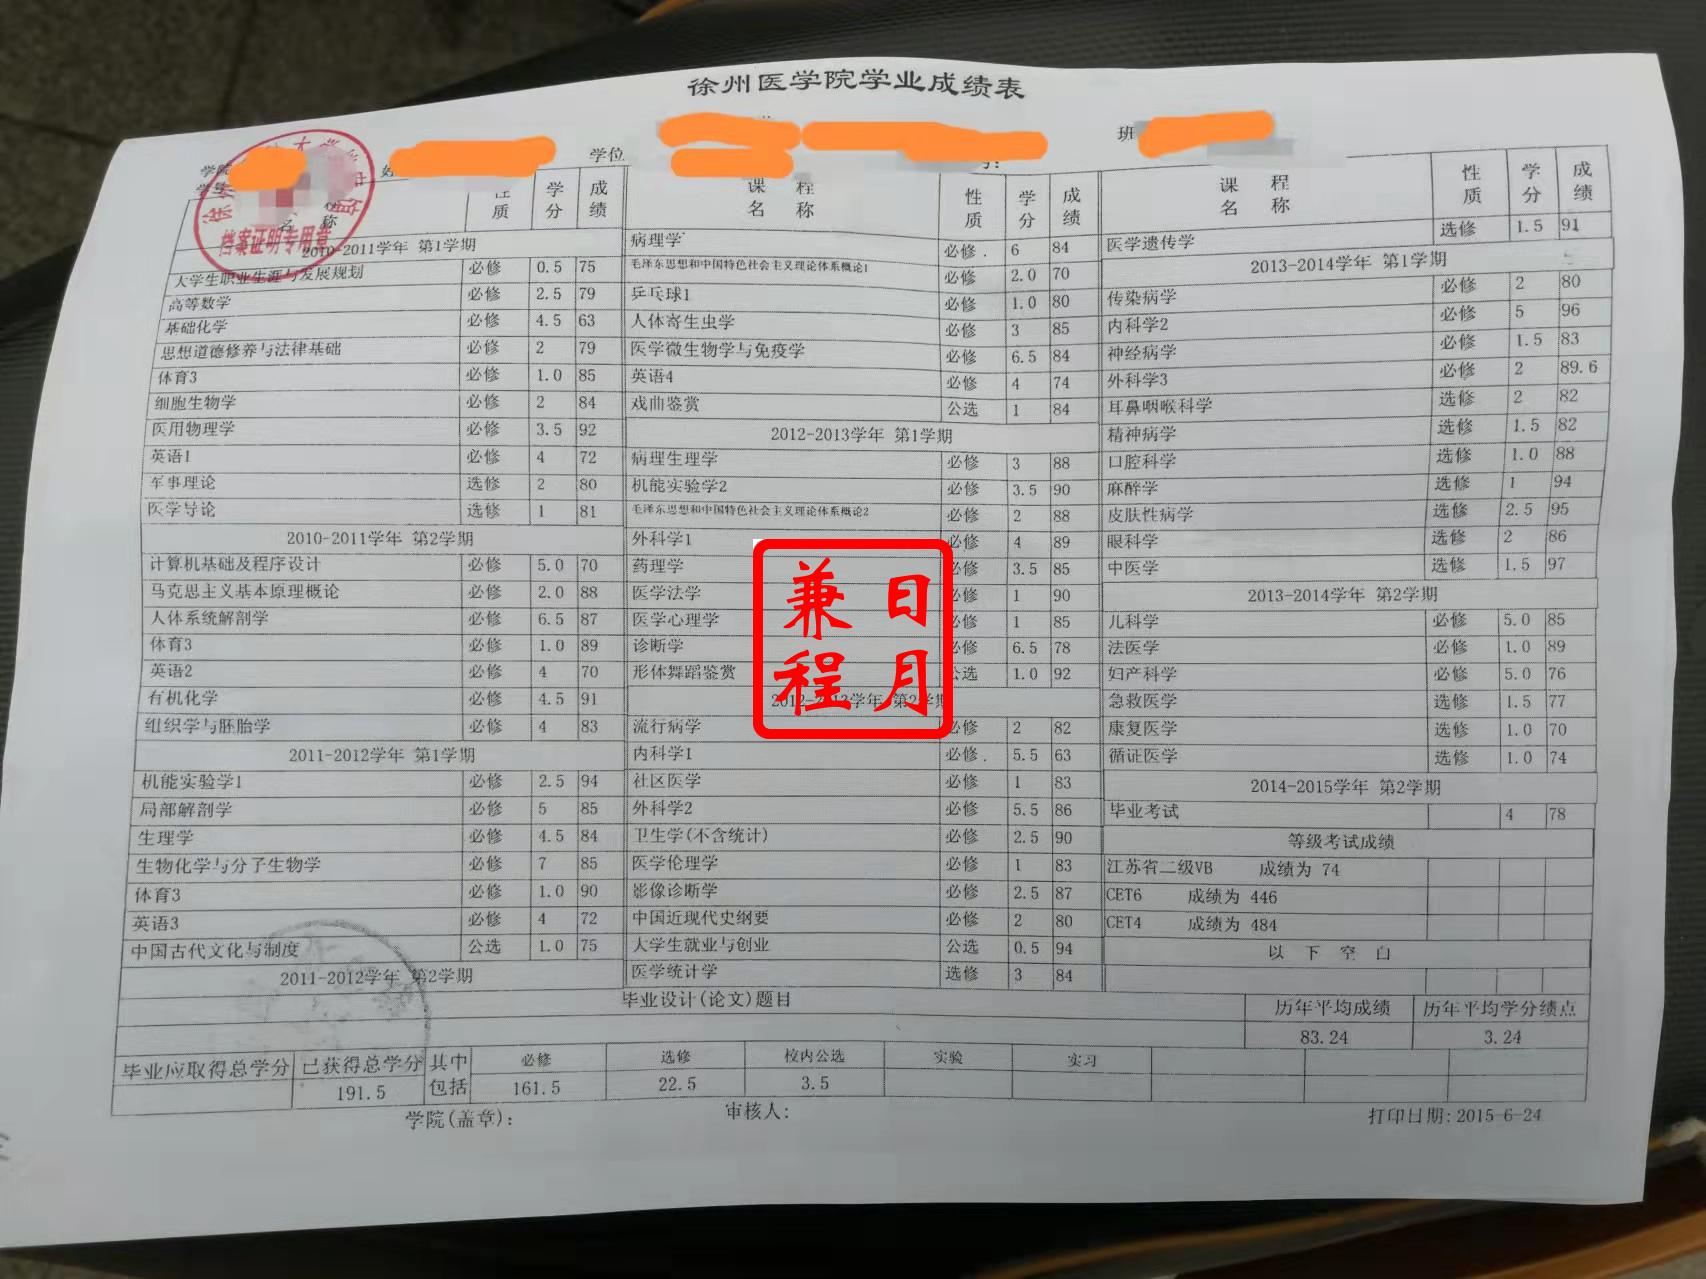 徐州医学院学业成绩表
学院
学位
班
学号
档案证明专用章
名 称 性质 学分 成绩
2010-2011学年 第1学期
大学生职业生涯与发展规划 必修 0.5 75
高等数学 必修 2.5 79
基础化学 必修 4.5 63
思想道德修养与法律基础 必修 2 79
体育3 必修 1.0 85
细胞生物学 必修 2 84
医用物理学 必修 3.5 92
英语1 必修 4 72
军事理论 选修 2 80
医学导论 选修 1 81
2010-2011学年 第2学期
计算机基础及程序设计 必修 5.0 70
马克思主义基本原理概论 必修 2.0 88
人体系统解剖学 必修 6.5 87
体育3 必修 1.0 89
英语2 必修 4 70
有机化学 必修 4.5 91
组织学与胚胎学 必修 4 83
2011-2012学年 第1学期
机能实验学1 必修 2.5 94
局部解剖学 必修 5 85
生理学 必修 4.5 84
生物化学与分子生物学 必修 7 85
体育3 必修 1.0 90
英语3 必修 4 72
中国古代文化与制度 公选 1.0 75
2011-2012学年 第2学期
课程名称 性质 学分 成绩
病理学 必修 6 84
毛泽东思想和中国特色社会主义理论体系概论1 必修 2.0 70
乒乓球1 必修 1.0 80
人体寄生虫学 必修 3 85
医学微生物学与免疫学 必修 6.5 84
英语4 必修 4 74
戏曲鉴赏 公选 1 84
2012-2013学年 第1学期
病理生理学 必修 3 88
机能实验学2 必修 3.5 90
毛泽东思想和中国特色社会主义理论体系概论2 必修 2 88
外科学1 必修 4 89
药理学 必修 3.5 85
医学法学 必修 1 90
医学心理学 必修 1 85
诊断学 必修 6.5 78
形体舞蹈鉴赏 公选 1.0 92
2012-2013学年 第2学期
流行病学 必修 2 82
内科学1 必修 5.5 63
社区医学 必修 1 83
外科学2 必修 5.5 86
卫生学(不含统计) 必修 2.5 90
医学伦理学 必修 1 83
影像诊断学 必修 2.5 87
中国近现代史纲要 必修 2 80
大学生就业与创业 公选 0.5 94
医学统计学 选修 3 84
课程名称 性质 学分 成绩
医学遗传学 选修 1.5 91
2013-2014学年 第1学期
传染病学 必修 2 80
内科学2 必修 5 96
神经病学 必修 1.5 83
外科学3 必修 2 89.6
耳鼻咽喉科学 选修 2 82
精神病学 选修 1.5 82
口腔科学 选修 1.0 88
麻醉学 选修 1 94
皮肤性病学 选修 2.5 95
眼科学 选修 2 86
中医学 选修 1.5 97
2013-2014学年 第2学期
儿科学 必修 5.0 85
法医学 必修 1.0 89
妇产科学 必修 5.0 76
急救医学 选修 1.5 77
康复医学 选修 1.0 70
循证医学 选修 1.0 74
2014-2015学年 第2学期
毕业考试 4 78
等级考试成绩
江苏省二级VB 成绩为 74
CET6 成绩为 446
CET4 成绩为 484
以 下 空 白
日月兼程
毕业设计(论文)题目 历年平均成绩 历年平均学分绩点
83.24 3.24
毕业应取得总学分 已获得总学分 其中包括 必修 选修 校内公选 实验 实习
191.5 161.5 22.5 3.5
学院(盖章): 审核人: 打印日期:2015-6-24